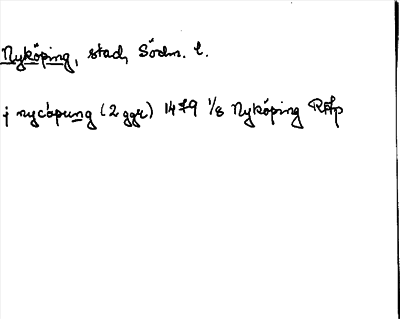 Nyköping, stad, Södm. l.
j nycöpung (2 ggr) 1479 1/8 Nyköping RAp